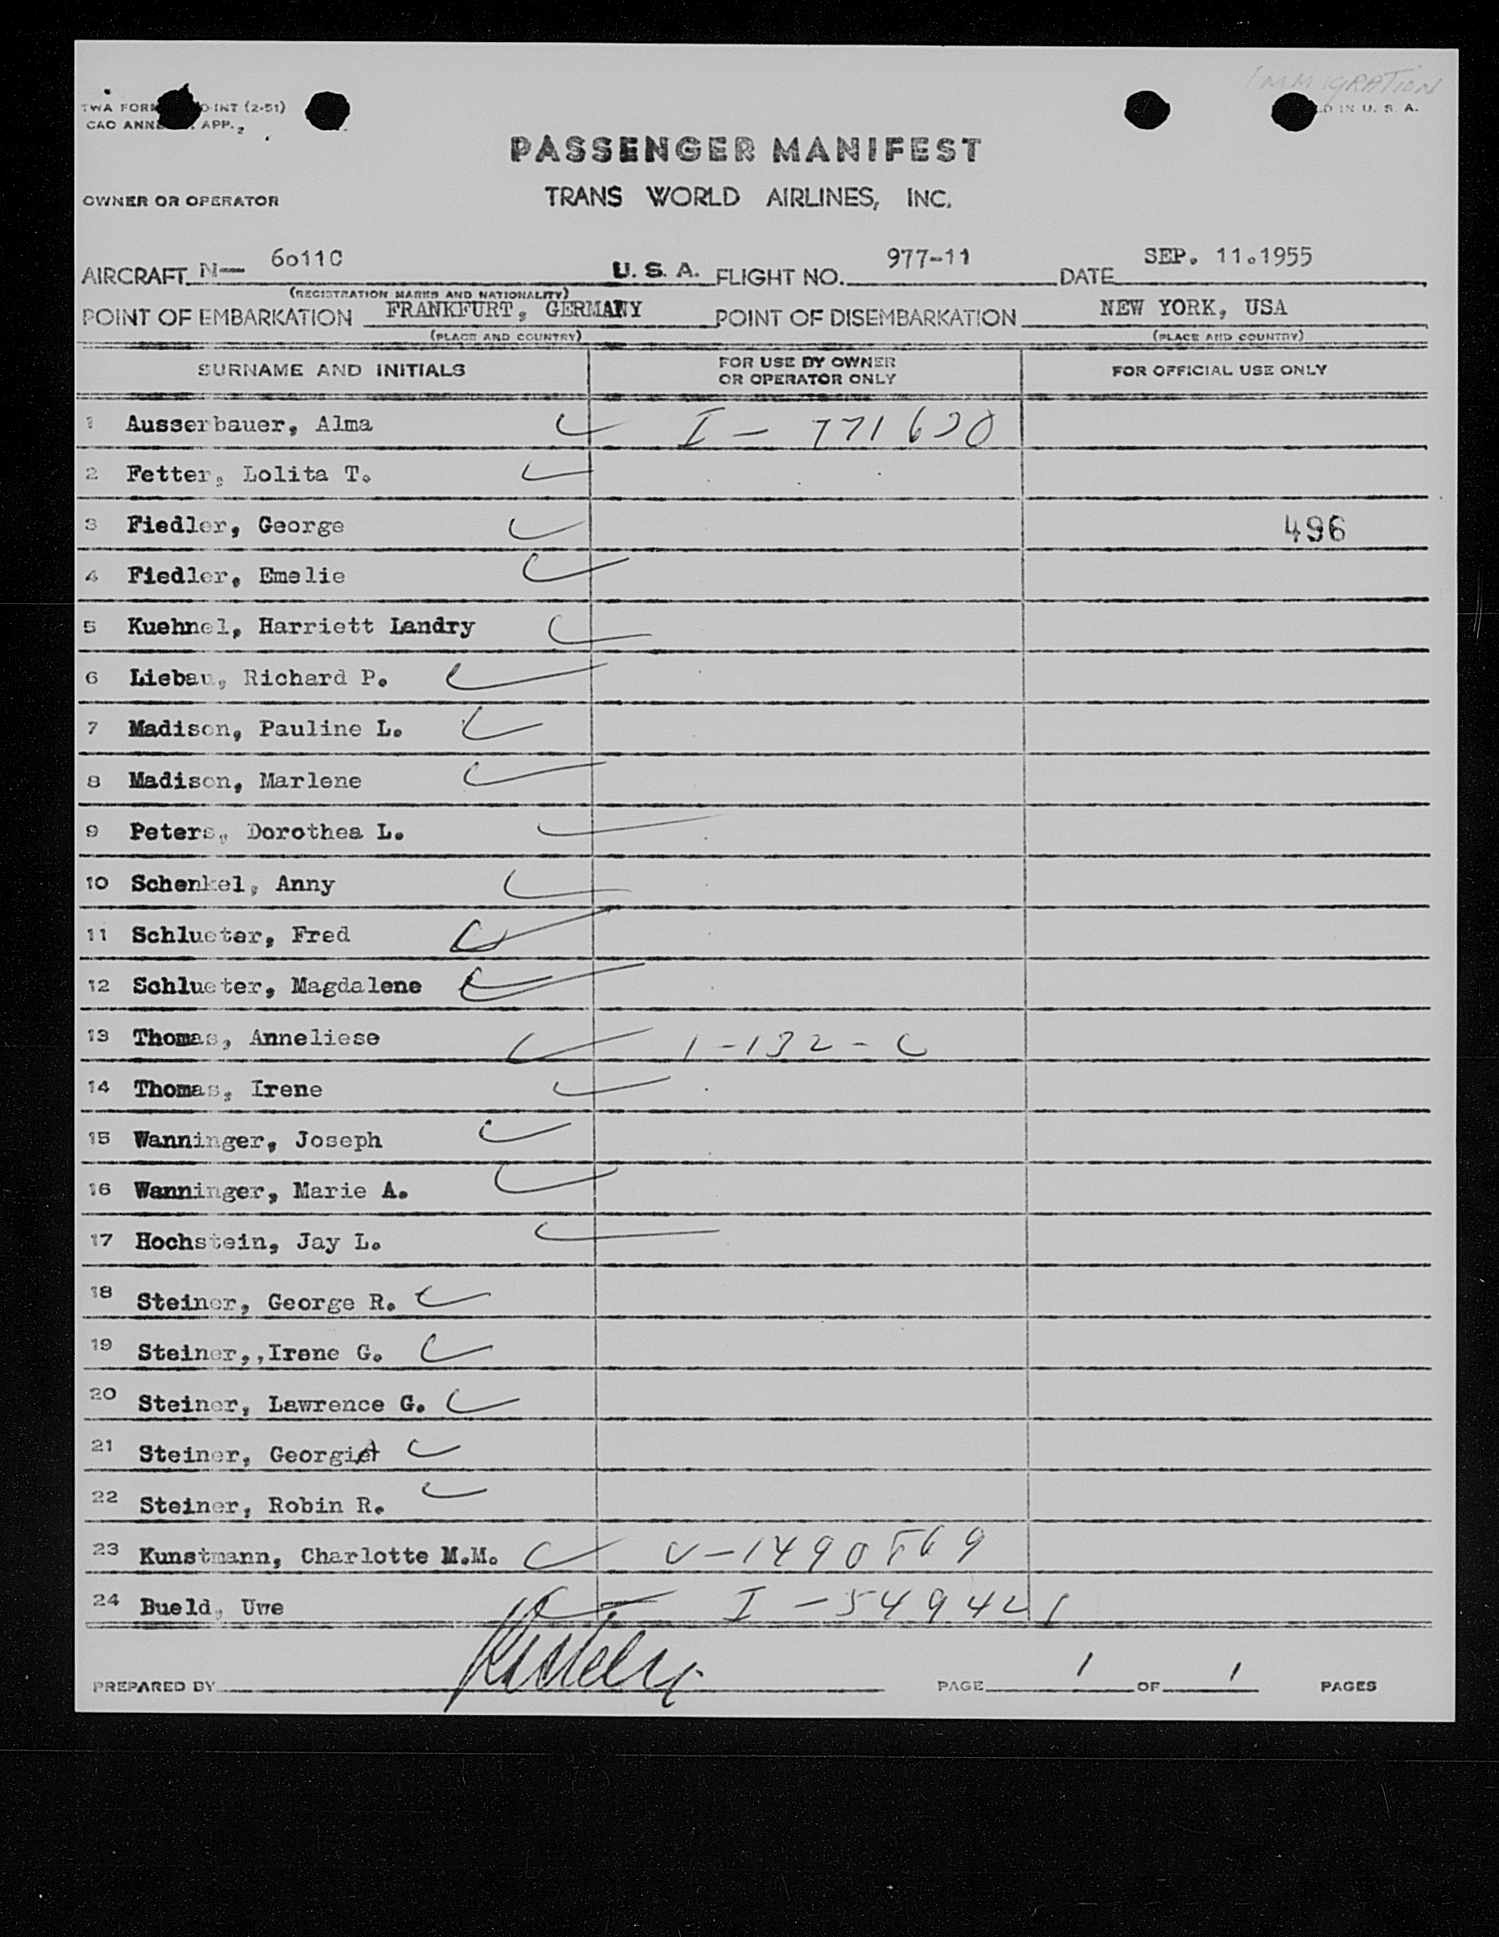 IMMIGRATION
TWA FORM INT (2-51)
CAO ANNE APP.
IN U. S. A.
PASSENGER MANIFEST
OWNER OR OPERATOR TRANS WORLD AIRLINES, INC.
AIRCRAFT N— 6011C U. S. A. FLIGHT NO. 977-11 DATE SEP. 11.1955
(REGISTRATION MARKS AND NATIONALITY)
POINT OF EMBARKATION FRANKFURT, GERMANY POINT OF DISEMBARKATION NEW YORK, USA
(PLACE AND COUNTRY) (PLACE AND COUNTRY)
SURNAME AND INITIALS FOR USE BY OWNER OR OPERATOR ONLY FOR OFFICIAL USE ONLY
1 Ausserbauer, Alma I - 771630
2 Fetter, Lolita T.
3 Fiedler, George 496
4 Fiedler, Emelie
5 Kuehnel, Harriett Landry
6 Liebau, Richard P.
7 Madison, Pauline L.
8 Madison, Marlene
9 Peters, Dorothea L.
10 Schenkel, Anny
11 Schlueter, Fred
12 Schlueter, Magdalene
13 Thomas, Anneliese 1-132-C
14 Thomas, Irene
15 Wanninger, Joseph
16 Wanninger, Marie A.
17 Hochstein, Jay L.
18 Steiner, George R.
19 Steiner,,Irene G.
20 Steiner, Lawrence G.
21 Steiner, Georgiet
22 Steiner, Robin R.
23 Kunstmann, Charlotte M.M. V-1490569
24 Bueld, Uwe I-549421
PREPARED BY PAGE 1 OF 1 PAGES